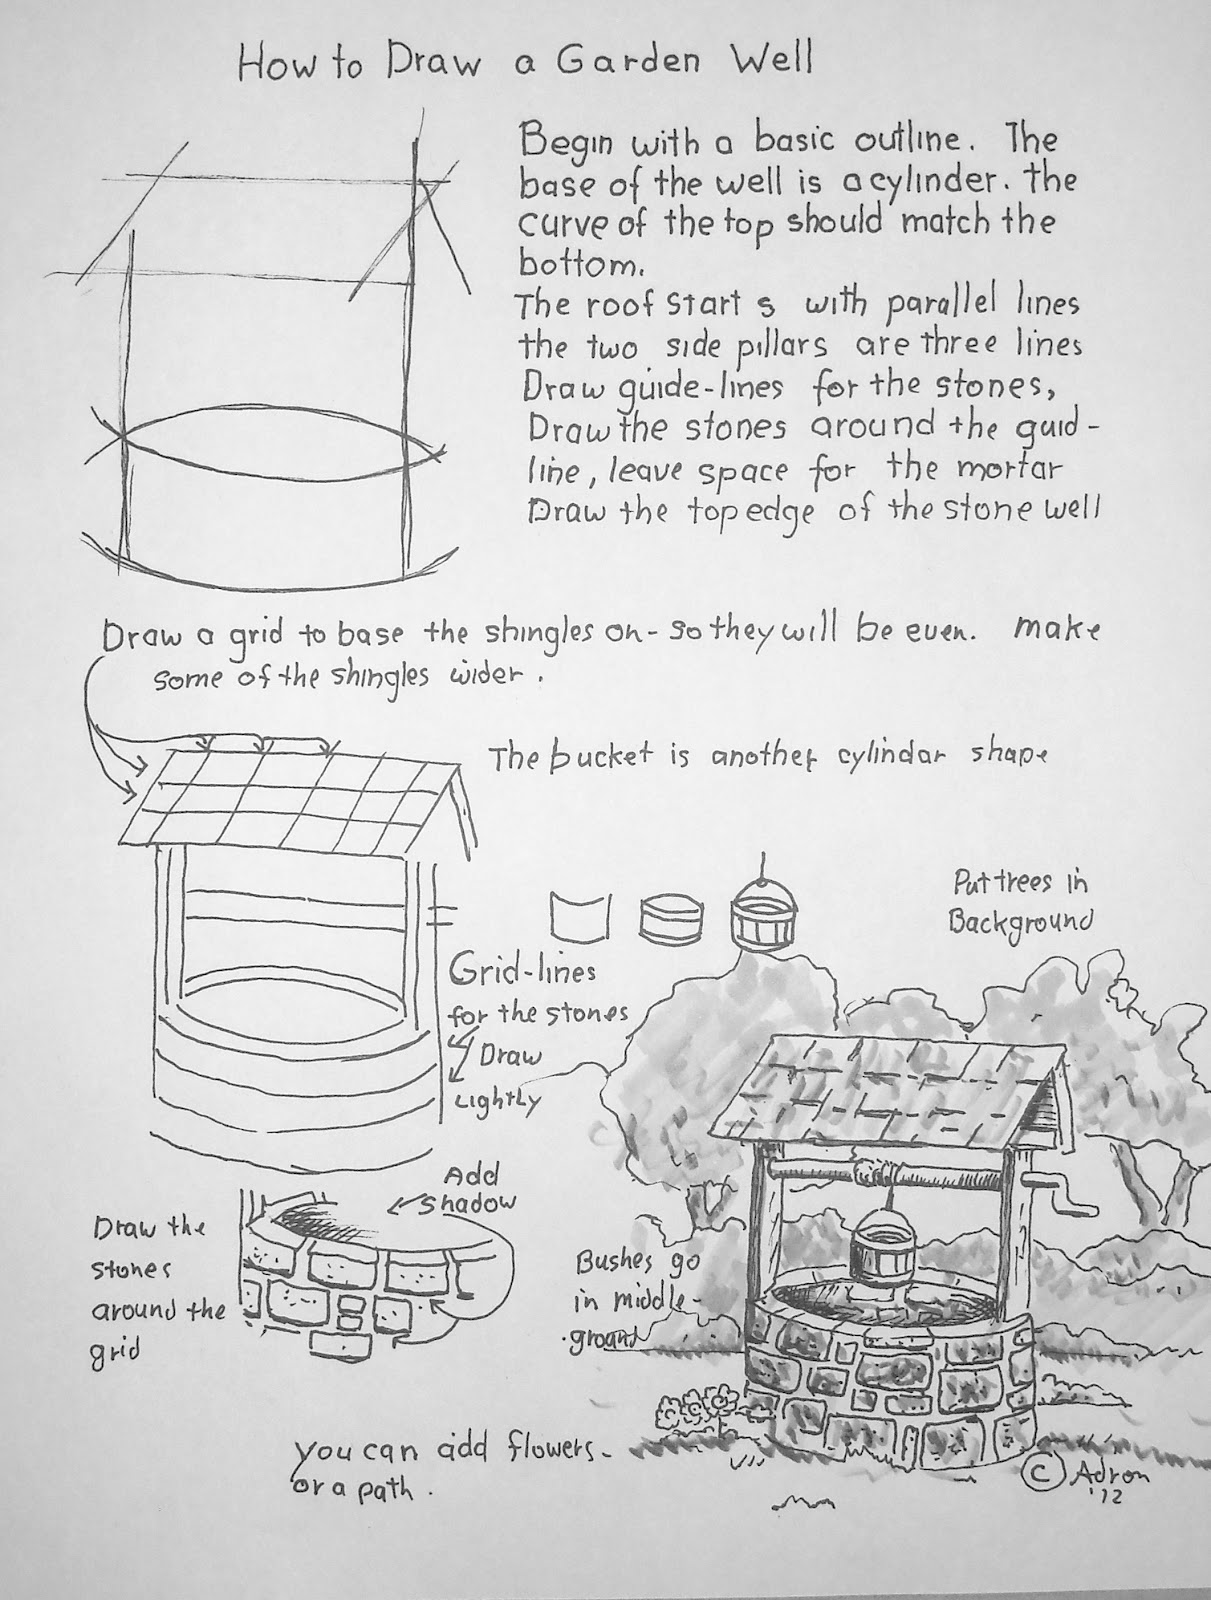 How to Draw a Garden Well
Begin with a basic outline. The
base of the well is a cylinder. the
curve of the top should match the
bottom.
The roof start s with parallel lines
the two side pillars are three lines
Draw guide-lines for the stones,
Draw the stones around the guid-
line, leave space for the mortar
Draw the top edge of the stone well
Draw a grid to base the shingles on - so they will be even. make
some of the shingles wider.
The bucket is another cylindar shape
Put trees in
Background
Grid-lines
for the stones
Draw
Lightly
Add
shadow
Draw the
stones
around the
grid
Bushes go
in middle-
ground
you can add flowers-
or a path.
© Adron
'12